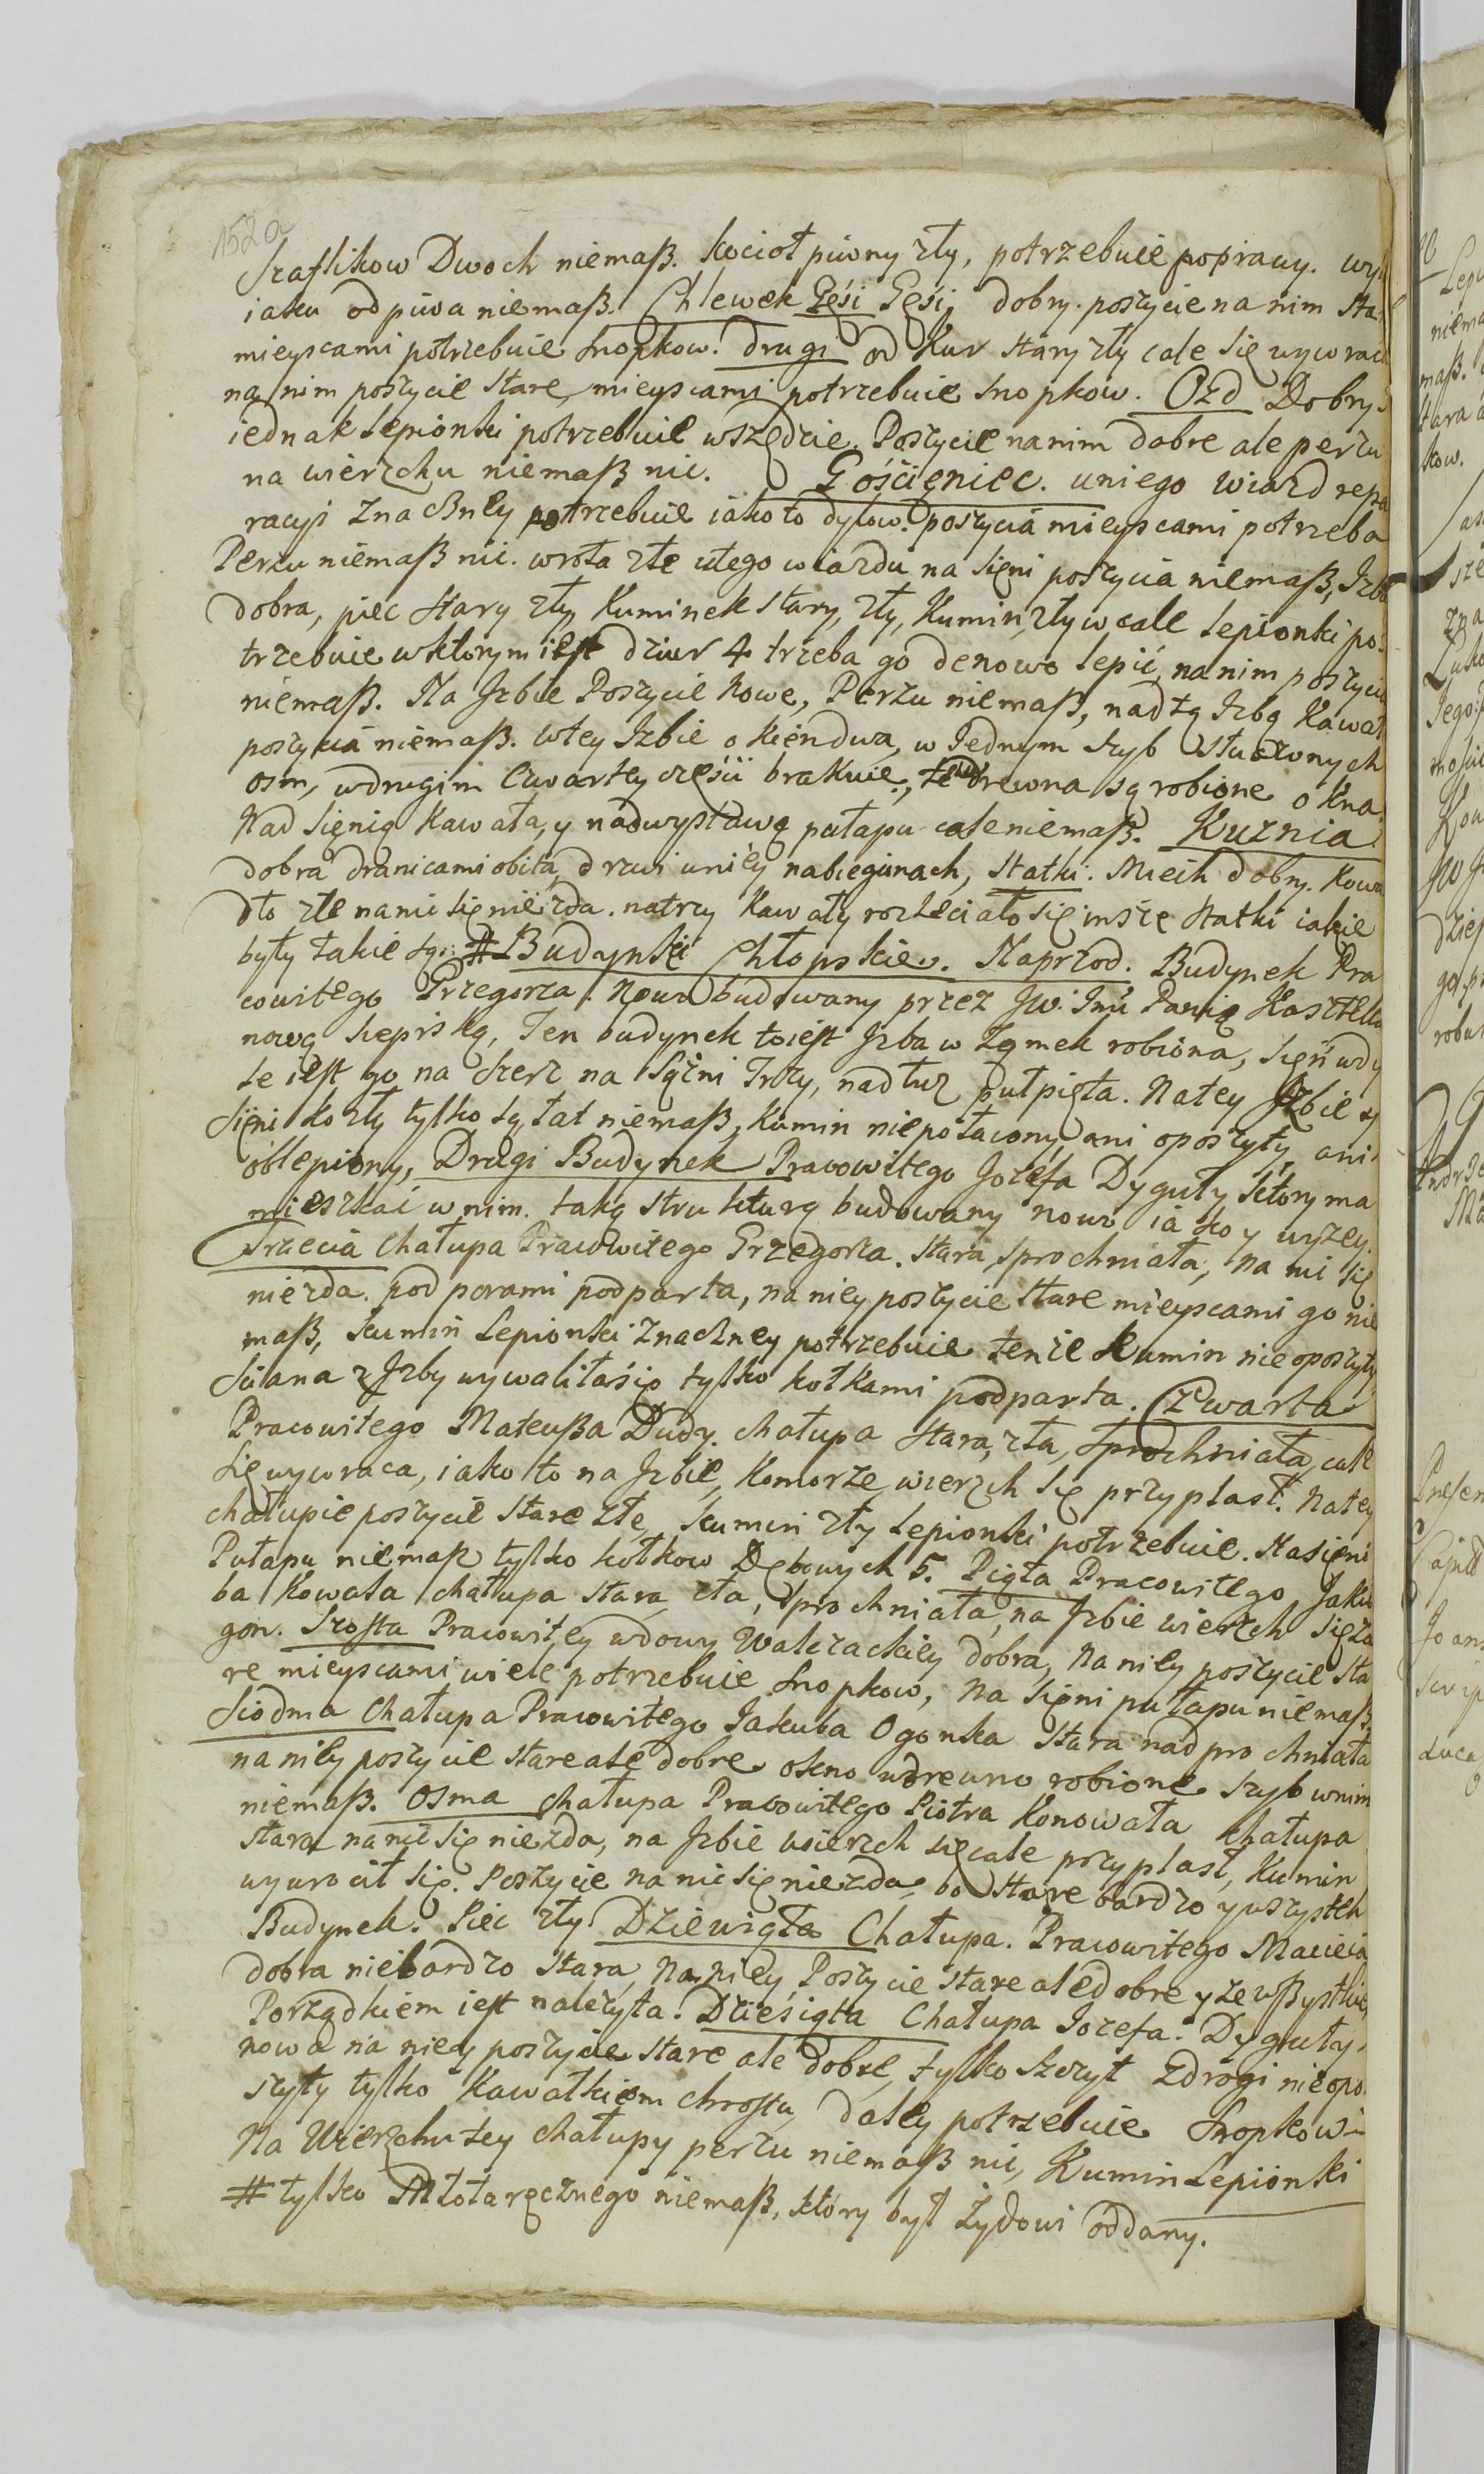 152a
Szaflikow Dwoch niemaß. Kocioł piwny zły, potrzebuie poprawy. wy
iaku od piwa niemaß. Chlewek Gęsi Gęsi, dobry. poszycie na nim sta
mieyscami potrzebuie snopkow. drugi od Kur stary zły cale się wywraca
na nim poszycie stare, mieyscami potrzebuie snopkow. Ozd Dobry
iednak lepionki potrzebuie wszędzie. Poszycie na nim dobre ale perzu
na wierzchu niemaß nic. Gościeniec. uniego wiazd repa
racyi znaczney potrzebuie iako to dylow. poszycia mieyscami potrzeba
Perzu niemaß nic. wrota złe utego wiazdu, na sięni poszycia niemaß, Izba
dobra, piec stary zły, Kuminek stary, zły, Kumin, zły wcale lepionki po:
trzebuie wktorym iest dziur 4 trzeba go denowo lepić, na nim poszycia
niemaß. Na Izbie Poszycie nowe, Perzu niemaß, nad tą Izbą Kawał
poszycia niemaß. wtey Izbie okien dwa, w Iednym szyb stuczonych
osm, wdrugim Czwartey częsci brakuie, te w drewna są robione okna.
Nad sięnią kawała, y nadwystawą pułapu cale niemaß. Kuznia
dobra dranicami obita, drzwi uniey nabiegunach, statki. Miech dobry. Kowa
dło złe nanic się nie zda. natrzy kawały rozleciało się insze statki iakie
były takie są. # Budynki Chłopskie. Naprzod. Budynek Pra
cowitego Grzegorza. Nowo budowany przez Jw. Imć Panią Kasztella
nową Sieprską, Ten budynek to iest Izba w Zamek robiona, sięń wdy
le iest go na szerz na sążni Trzy, nadłuz pułpięta. Natey Izbie y
sięni kozły tylko są, łat niemaß, Kumin niepołacony, ani oposzyty, ani
oblepiony, Drugi Budynek Pracowitego Jozefa Dyguły ktory ma
mieszkać w nim. taką strukturą budowany nowo iako y wyzey.
Trzecia Chałupa Pracowitego Grzegorza. stara, sprochniała, na nic się
niezda. podporami podparta, na niey poszycie stare mieyscami go nie
maß, kumin Lepionki znaczney potrzebuie tenze kumin nieoposzyty.
Sciana z Izby wywaliłasię tylko kołkami podparta. Czwarta
Pracowitego Mateußa Dudy. chałupa stara, zła, sprochniała, cale
się wywraca, iako to na Izbie, Komorze, wierzch się przyplasł. Natey
chałupie poszycie stare złe, kumin zły lepionki potrzebuie. Nasięni
Pułapu niemaß tylko kołkow Dębowych 5. Piąta Pracowitego Jaku
ba Kowala chałupa stara, zła, sprochniała, na Izbie wierzch się za
gon. Szosta Pracowitey wdowy Walczackiey dobra, na niey poszycie sta
re mieyscami wiele potrzebuie snopkow, na sięni pułapu niemaß.
Siodma Chałupa Pracowitego Jakuba Ogonka stara nadprochniała
na niey poszycie stare ale dobre okno wdrewno robione szyb wnim
niemaß. Osma chałupa Pracowitego Piotra Konowała chałupa
stara nanic się niezda, na Izbie wierzch się cale przyplasł, kumin
wywrocił się. Poszycie nanic się niezda, bo stare bardzo ywszystek
Budynek. Piec zły. Dziewiąta Chałupa. Pracowitego Macieia
dobra niebardzo stara, na niey Poszycie stare ale dobre y ze wßystkim
Porządkiem iest nalezyta. Dziesiąta Chałupa Jozefa. Dyguły.
nowa na niey poszycie stare ale dobre, tylko szczyt zdrogi nieopo:
szyty tylko Kawałkiem chrostu, daley potrzebuie Snopkow
Na Wierzchu tey chałupy perzu niemaß nic, Kumin Lepionki
# tylko Młota ręcznego niemaß, ktory był Zydowi oddany.